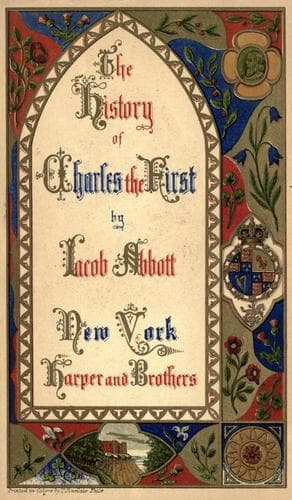 The
History
of
Charles the First
by
Jacob Abbott
New York
Harper and Brothers
Printed in Colors by T. Sinclair Phila